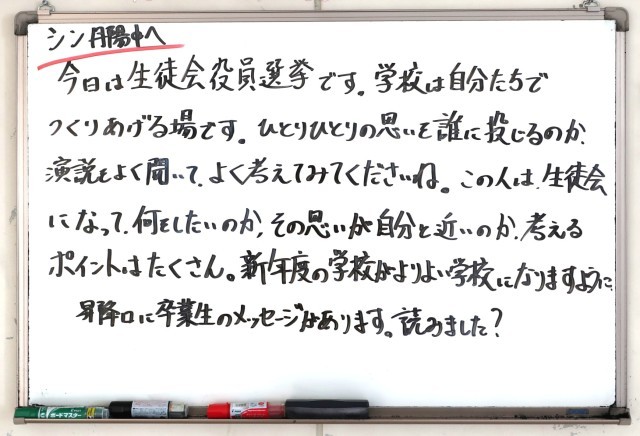 シン丹陽中へ
今日は生徒会役員選挙です。学校は自分たちで
つくりあげる場です。ひとりひとりの思いを誰に投じるのか、
演説をよく聞いて、よく考えてみてくださいね。この人は、生徒会
になって、何をしたいのか、その思いが自分と近いのか、考える
ポイントはたくさん。新年度の学校がよりよい学校になりますように
昇降口に卒業生のメッセージがあります。読みました？
ボードマスター